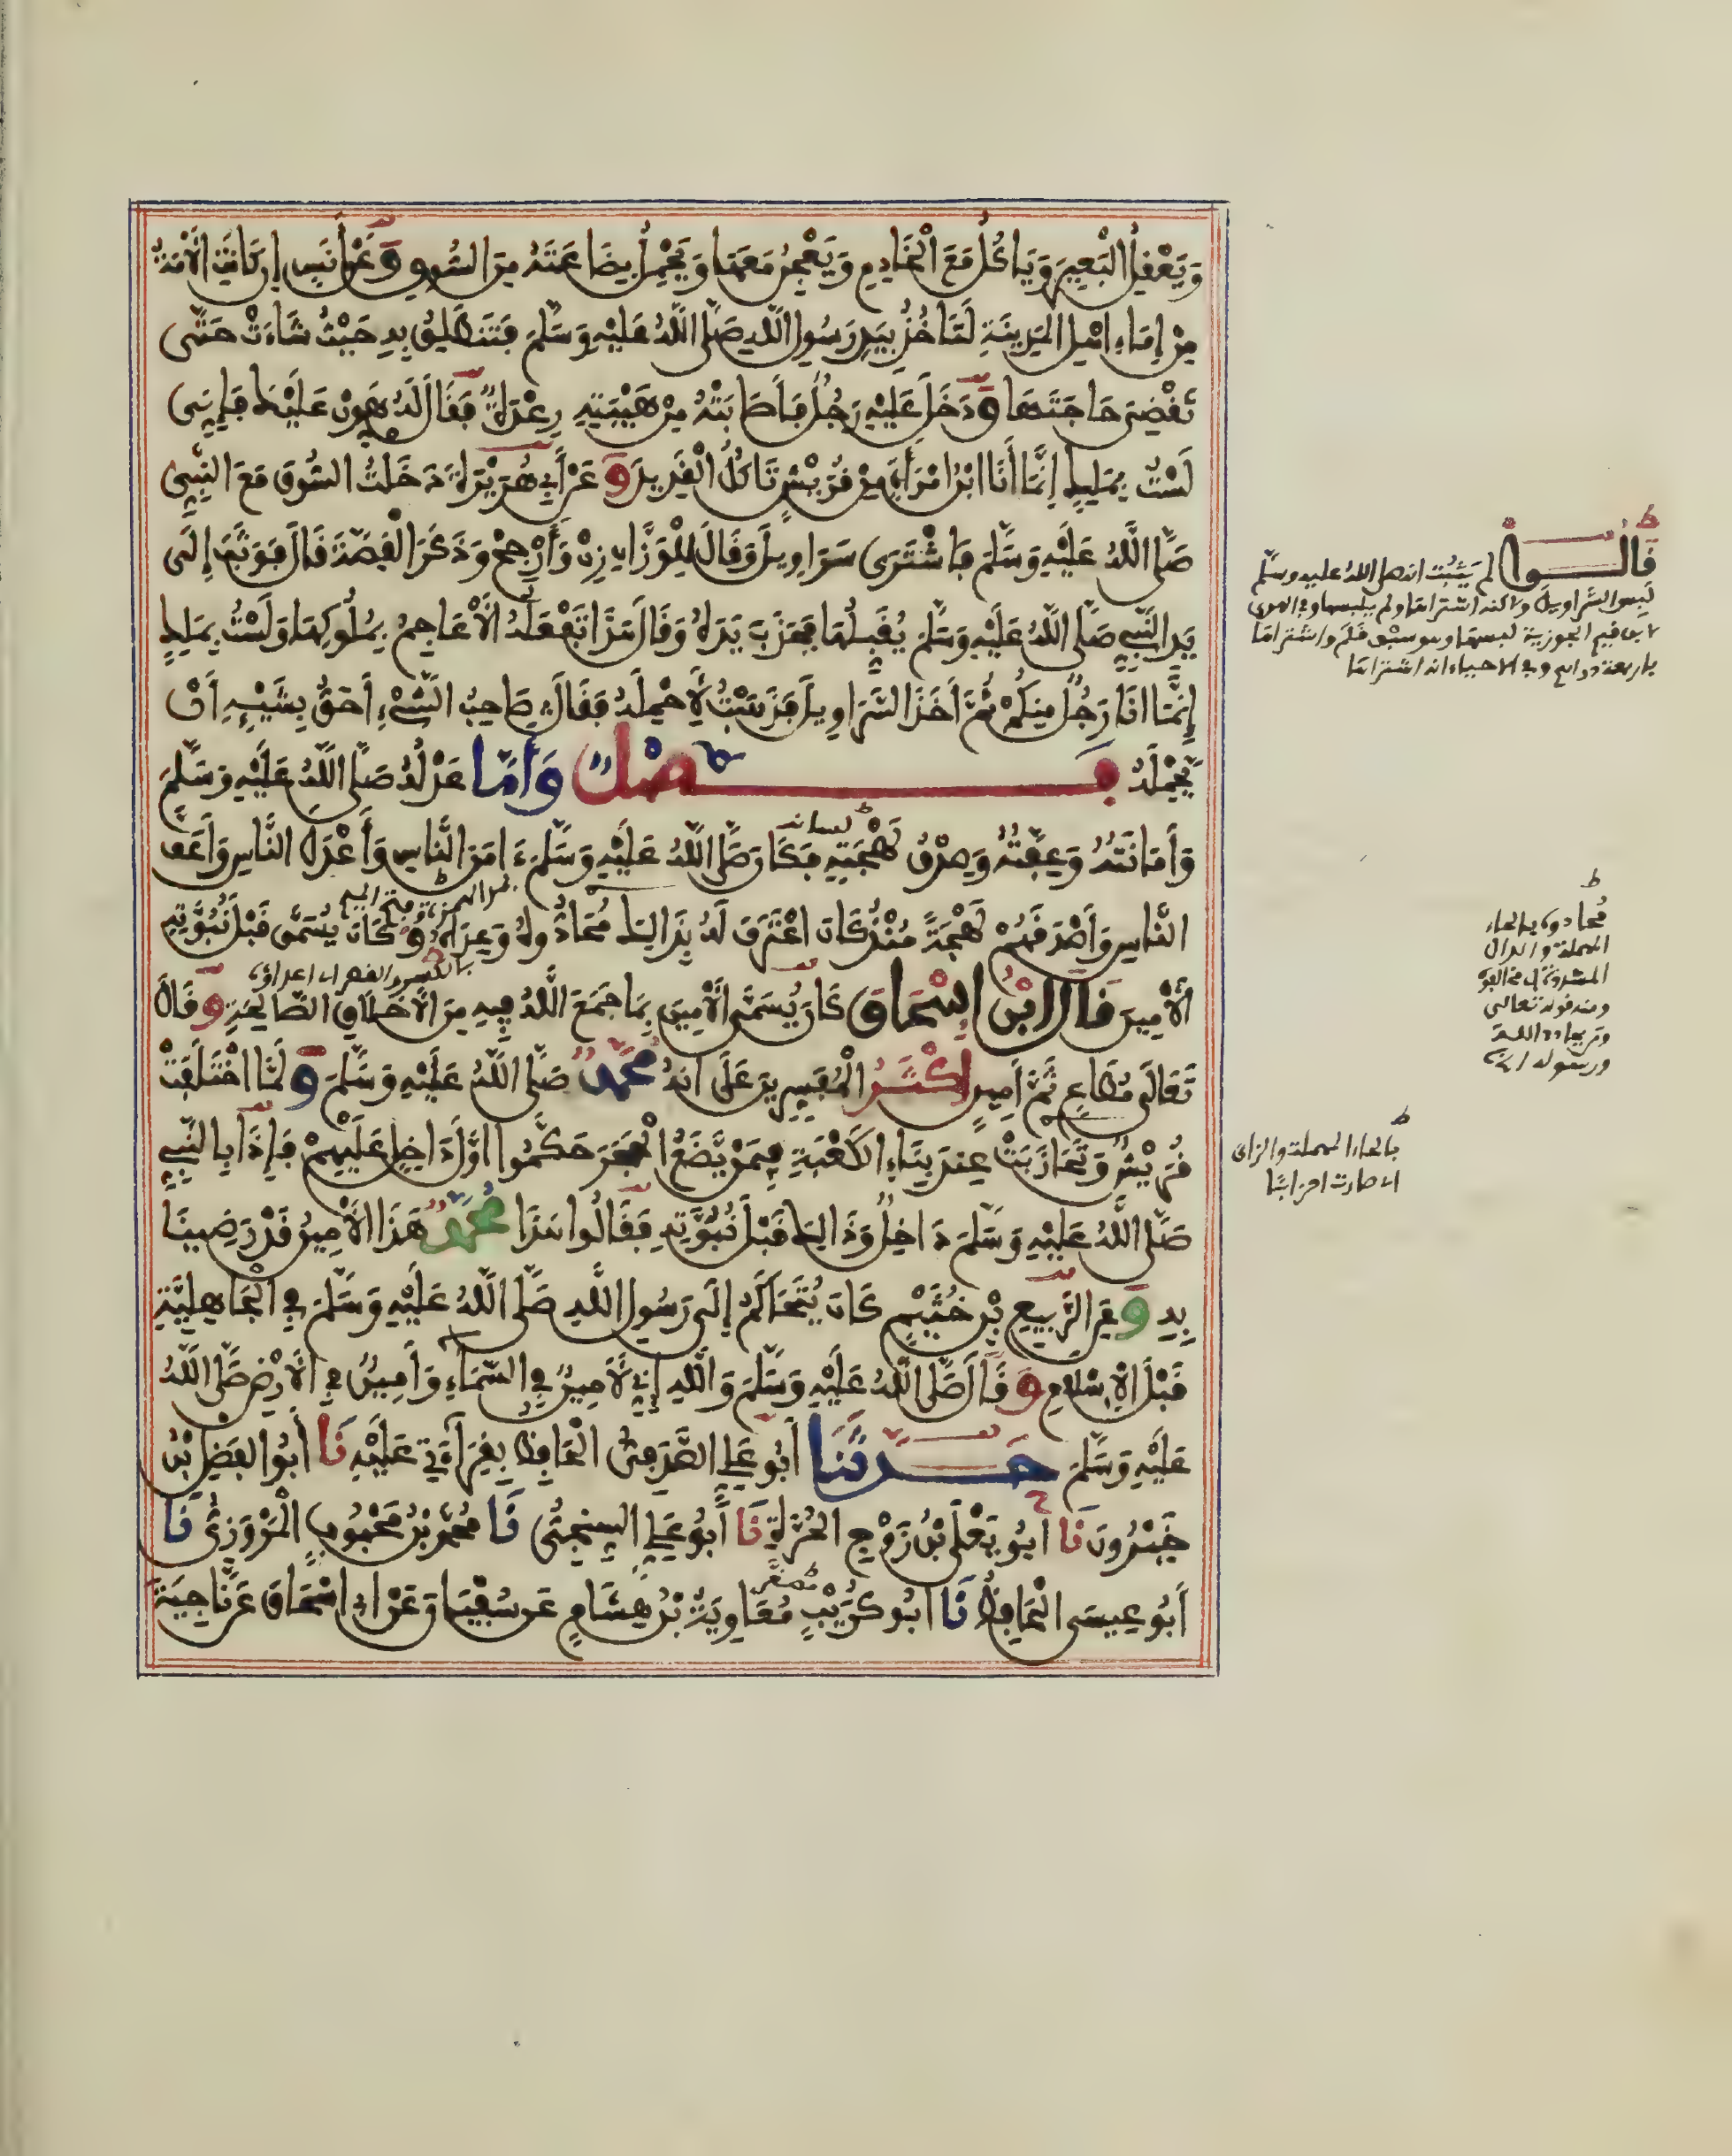 وَيَعْقِلُ الْبَعِيرَ وَيَاكُلُ مَعَ الْخَادِمِ وَيَعْجِنُ مَعَهَا وَيَحْمِلُ بِضَاعَتَهُ مِنَ السُّوقِ وَعَنْ أَنَسٍ إِن كَانَتِ الْأَمَةُ
مِنْ إِمَاءِ اهْلِ الْمَدِينَةِ لَتَاخُذُ بِيَدِ رَسُولِ اللَّهِ صَلَّى اللَّهُ عَلَيْهِ وَسَلَّمَ فَتَنطَلِقُ بِهِ حَيْثُ شَاءَتْ حَتَّى
تَقْضِيَ حَاجَتَهَا وَدَخَلَ عَلَيْهِ رَجُلٌ فَأَصَابَتْهُ مِنْ هَيْبَتِهِ رِعْدَةٌ فَقَالَ لَهُ هَوِّنْ عَلَيْكَ فَإِنِّي
لَسْتُ بِمَلِكٍ إِنَّمَا أَنَا ابْنُ امْرَأَةٍ مِنْ قُرَيْشٍ تَاكُلُ الْقَدِيدَ وَعَنْ أَبِي هُرَيْرَةَ دَخَلْتُ السُّوقَ مَعَ النَّبِيِّ
صَلَّى اللَّهُ عَلَيْهِ وَسَلَّمَ فَاشْتَرَى سَرَاوِيلَ وَقَالَ لِلْوَزَّانِ زِنْ وَأَرْجِحْ وَذَكَرَ الْقِصَّةَ قَالَ فَوَثَبَ إِلَى
يَدِ النَّبِيِّ صَلَّى اللَّهُ عَلَيْهِ وَسَلَّمَ يُقَبِّلُهَا فَجَذَبَ يَدَهُ وَقَالَ هَذَا تَفْعَلُهُ الْأَعَاجِمُ بِمُلُوكِهَا وَلَسْتُ بِمَلِكٍ
إِنَّمَا انَا رَجُلٌ مِنكُمْ ثُمَّ أَخَذَ السَّرَاوِيلَ فَذَهَبْتُ لِأَحْمِلَهُ فَقَالَ صَاحِبُ الشَّيْءِ أَحَقُّ بِشَيْئِهِ أَنْ
يَحْمِلَهُ فَصْلٌ وَأَمَّا عَدْلُهُ صَلَّى اللَّهُ عَلَيْهِ وَسَلَّمَ
وَأَمَانَتُهُ وَعِفَّتُهُ وَصِدْقُ لَهْجَتِهِ فَكَانَ صَلَّى اللَّهُ عَلَيْهِ وَسَلَّمَ ءَامَنَ النَّاسِ وَأَعْدَلَ النَّاسِ وَأَعَفَّ
النَّاسِ وَأَصْدَقَهُمْ لَهْجَةً مُنْذُ كَانَ اعْتَرَفَ لَهُ بِذَالِكَ مُحَادُّوهُ وَعِدَاهُ وَكَانَ يُسَمَّى قَبْلَ نُبُوَّتِهِ
الْأَمِينَ قَالَ ابْنُ إِسْحَاقَ كَانَ يُسَمَّى الْأَمِينَ بِمَا جَمَعَ اللَّهُ فِيهِ مِنَ الْأَخْلَاقِ الصَّالِحَةِ وَقَالَ
تَعَالَى مُطَاعٍ ثَمَّ أَمِينٍ أَكْثَرُ الْمُفَسِّرِينَ عَلَى أَنَّهُ مُحَمَّدٌ صَلَّى اللَّهُ عَلَيْهِ وَسَلَّمَ وَلَمَّا اخْتَلَفَتْ
قُرَيْشٌ وَتَحَازَبَتْ عِندَ بِنَاءِ الْكَعْبَةِ فِيمَنْ يَضَعُ الْحَجَرَ حَكَّمُوا أَوَّلَ دَاخِلٍ عَلَيْهِمْ فَإِذَا بِالنَّبِيِّ
صَلَّى اللَّهُ عَلَيْهِ وَسَلَّمَ دَاخِلٌ وَذَالِكَ قَبْلَ نُبُوَّتِهِ فَقَالُوا هَذَا مُحَمَّدٌ هَذَا الْأَمِينُ قَدْ رَضِينَا
بِهِ وَعَنِ الرَّبِيعِ بْنِ خُثَيْمٍ كَانَ يُتَحَاكَمُ إِلَى رَسُولِ اللَّهِ صَلَّى اللَّهُ عَلَيْهِ وَسَلَّمَ فِي الْجَاهِلِيَّةِ
قَبْلَ الْإِسْلَامِ وَقَالَ صَلَّى اللَّهُ عَلَيْهِ وَسَلَّمَ وَاللَّهِ إِنِّي لَأَمِينٌ فِي السَّمَاءِ وَأَمِينٌ فِي الْأَرْضِ صَلَّى اللَّهُ
عَلَيْهِ وَسَلَّمَ حَدَّثَنَا أَبُو عَلِيٍّ الصَّدَفِيُّ الْحَافِظُ بِقِرَاءَتِي عَلَيْهِ نَا أَبُو الْفَضْلِ بْنُ
خَيْرُونَ نَا أَبُو يَعْلَى بْنُ زَوْجِ الْحُرَّةِ نَا أَبُو عَلِيٍّ السِّنْجِيُّ نَا مُحَمَّدُ بْنُ مَحْبُوبٍ الْمَرْوَزِيُّ نَا
أَبُو عِيسَى الْحَافِظُ نَا أَبُو كُرَيْبٍ مُعَاوِيَةُ بْنُ هِشَامٍ عَن سُفْيَانَ عَنْ أَبِي إِسْحَاقَ عَن نَّاجِيَةَ
لسانه
مصغر
قَالُوا لم يَثْبُت انه صلى الله عليه وسلم
لبس السراويل ولاكنه اشتراها ولم يلبسها وفي الهدى
لابن قيم الجوزية لبسها وهو سبق قلم واشتراها
باربعة دراهم وفي الاحياء انه اشتراها
مُحادوه بالحاء
المهملة والدال
المشددة اي مخالفوه
ومنه قوله تعالى
ومن يحادد الله
ورسوله
بالحاء المهملة والزاي
اي صارت احزابا